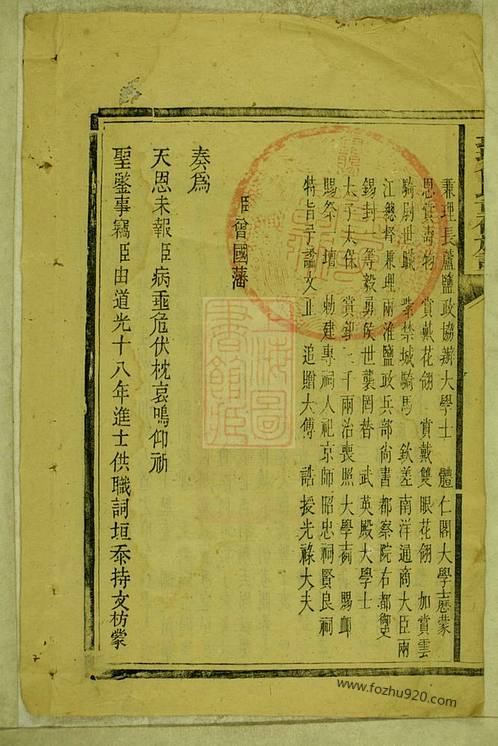 兼理長蘆鹽政協辦大學士　體仁閣大學士歷蒙
恩賞壽物　賞戴花翎　賞戴雙眼花翎　加賞雲
騎尉世職　紫禁城騎馬　欽差南洋通商大臣兩
江總督兼理兩淮鹽政兵部尚書都察院右都御史
錫封一等毅勇侯世襲罔替　武英殿大學士
太子太保　賞銀三千兩治喪照大學士例　賜卹
賜祭一壇　勅建專祠入祀京師昭忠祠賢良祠
特旨予諡文正　追贈大傅　誥授光祿大夫
臣曾國藩
奏為
天恩未報臣病垂危伏枕哀鳴仰祈
聖鑒事竊臣由道光十八年進士供職詞垣叅持文枋掌
上海圖書館藏
www.fozhu920.com